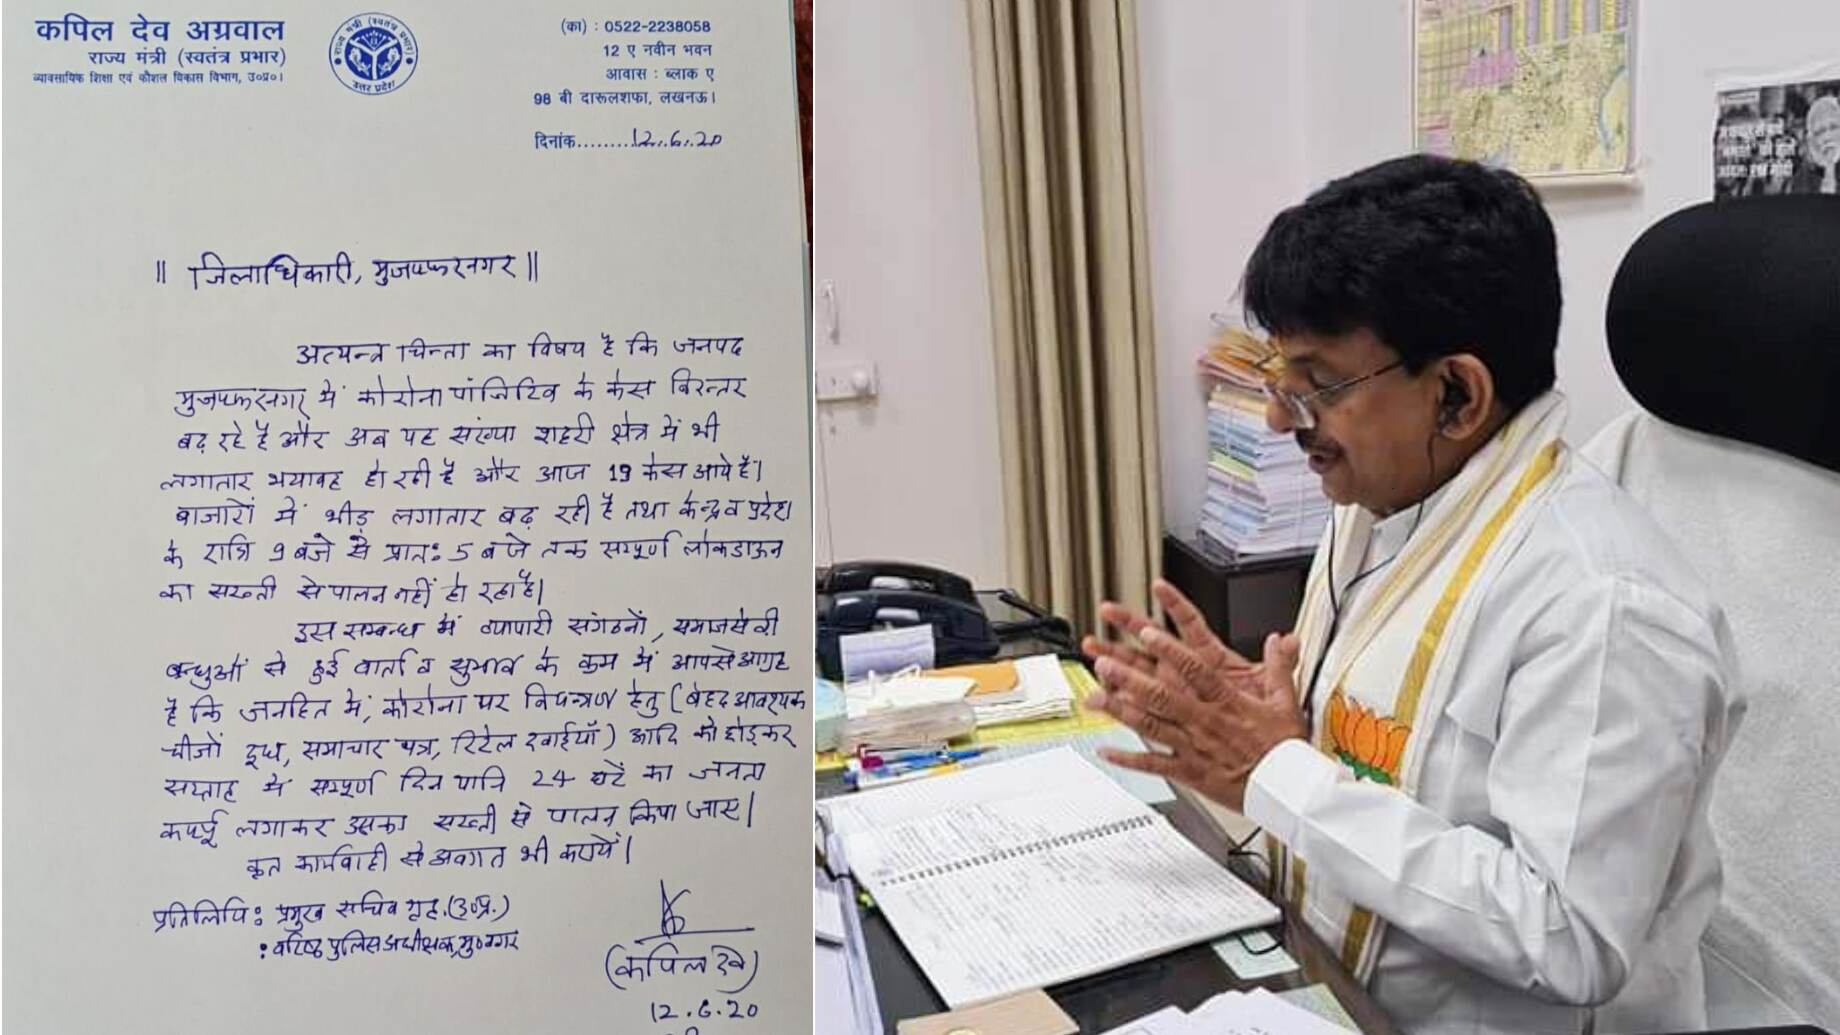 कपिल देव अग्रवाल
राज्य मंत्री (स्वतंत्र प्रभार)
व्यावसायिक शिक्षा एवं कौशल विकास विभाग, उ०प्र०।
राज्य मंत्री (स्वतंत्र प्रभार)
उत्तर प्रदेश
(का) : 0522-2238058
12 ए नवीन भवन
आवास : ब्लाक ए
98 बी दारूलशफा, लखनऊ।
दिनांक.........12.6.20
|| जिलाधिकारी, मुजफ्फरनगर ||
अत्यन्त चिन्ता का विषय है कि जनपद
मुजफ्फरनगर में कोरोना पॉजिटिव के केस निरन्तर
बढ़ रहे है और अब यह संख्या शहरी क्षेत्र में भी
लगातार भयावह हो रही है और आज 19 केस आये हैं।
बाजारों में भीड़ लगातार बढ़ रही है तथा केन्द्र व प्रदेश
के रात्रि 9 बजे से प्रात: 5 बजे तक सम्पूर्ण लोकडाऊन
का सख्ती से पालन नहीं हो रहा है।
इस सम्बन्ध में व्यापारी संगठनों, समाजसेवी
बन्धुओं से हुई वार्ता व सुझाव के क्रम में आपसे आग्रह
है कि जनहित में, कोरोना पर नियन्त्रण हेतु (बेहद आवश्यक
चीजों दूध, समाचार पत्र, रिटेल दवाईयाँ) आदि को छोड़कर
सप्ताह में सम्पूर्ण दिन यानि 24 घंटें का जनता
कर्फ्यू लगाकर उसका सख्ती से पालन किया जाए।
कृत कार्यवाही से अवगत भी करायें।
प्रतिलिपि: प्रमुख सचिव गृह.(उ०प्र.)
: वरिष्ठ पुलिस अधीक्षक, मु०नगर
(कपिल देव)
12.6.20